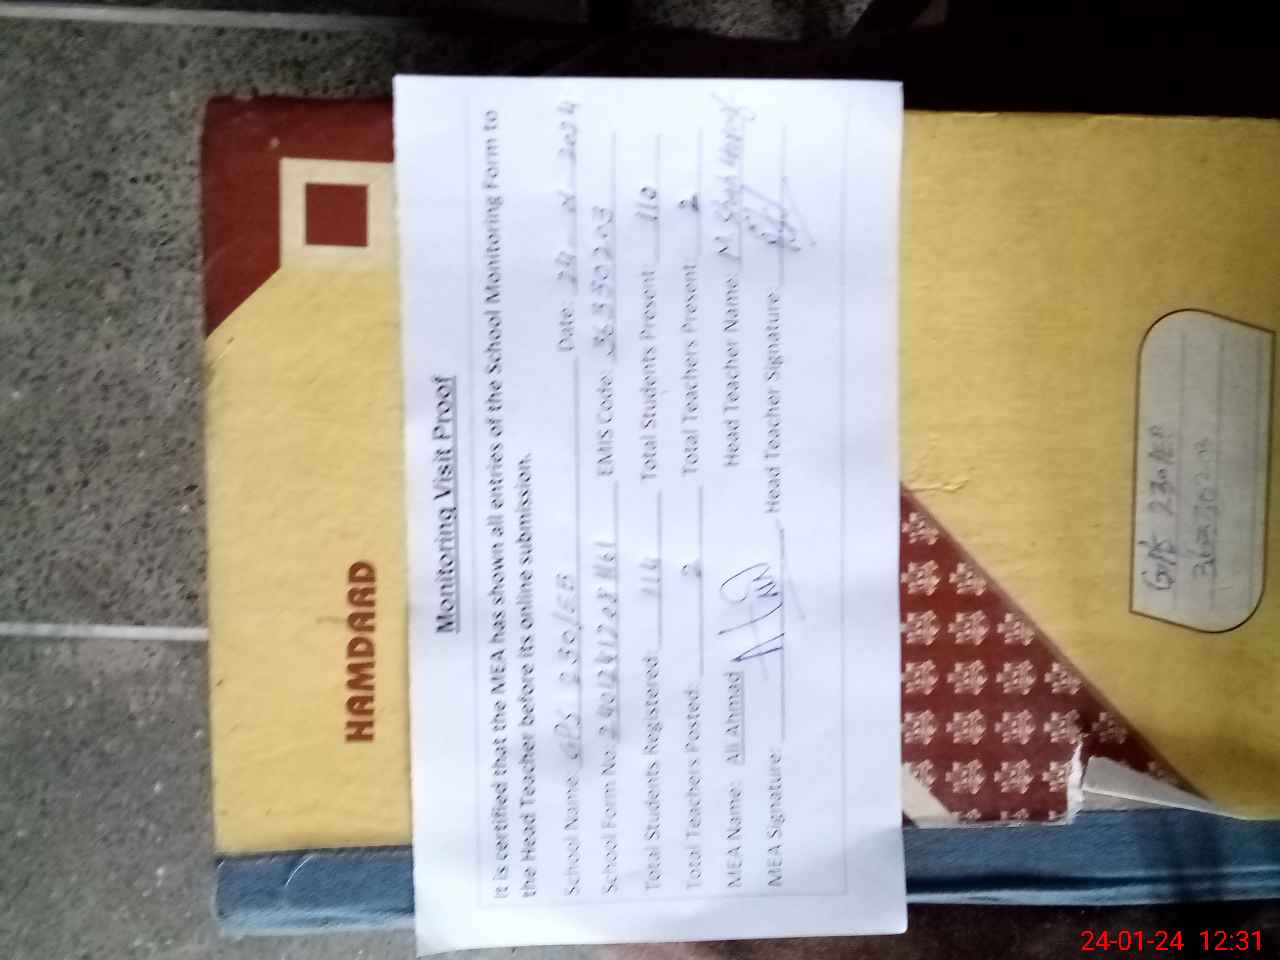 HAMDARD
Monitoring Visit Proof
It is certified that the MEA has shown all entries of the School Monitoring Form to
the Head Teacher before its online submission.
School Name: GPS 230/EB Date: 24 2024
School Form No: EMIS Code:
Total Students Registered: 114 Total Students Present: 110
Total Teachers Posted: 2 Total Teachers Present: 2
MEA Name: Ali Ahmad Head Teacher Name: M.
MEA Signature: Head Teacher Signature:
GPS 230/EB
24-01-24 12:31